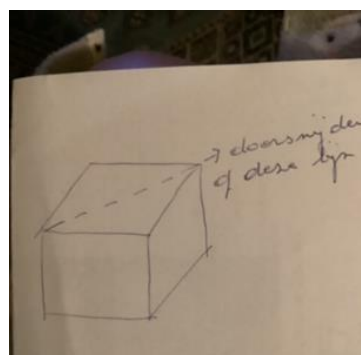 → doorsnijden
of deze lijn